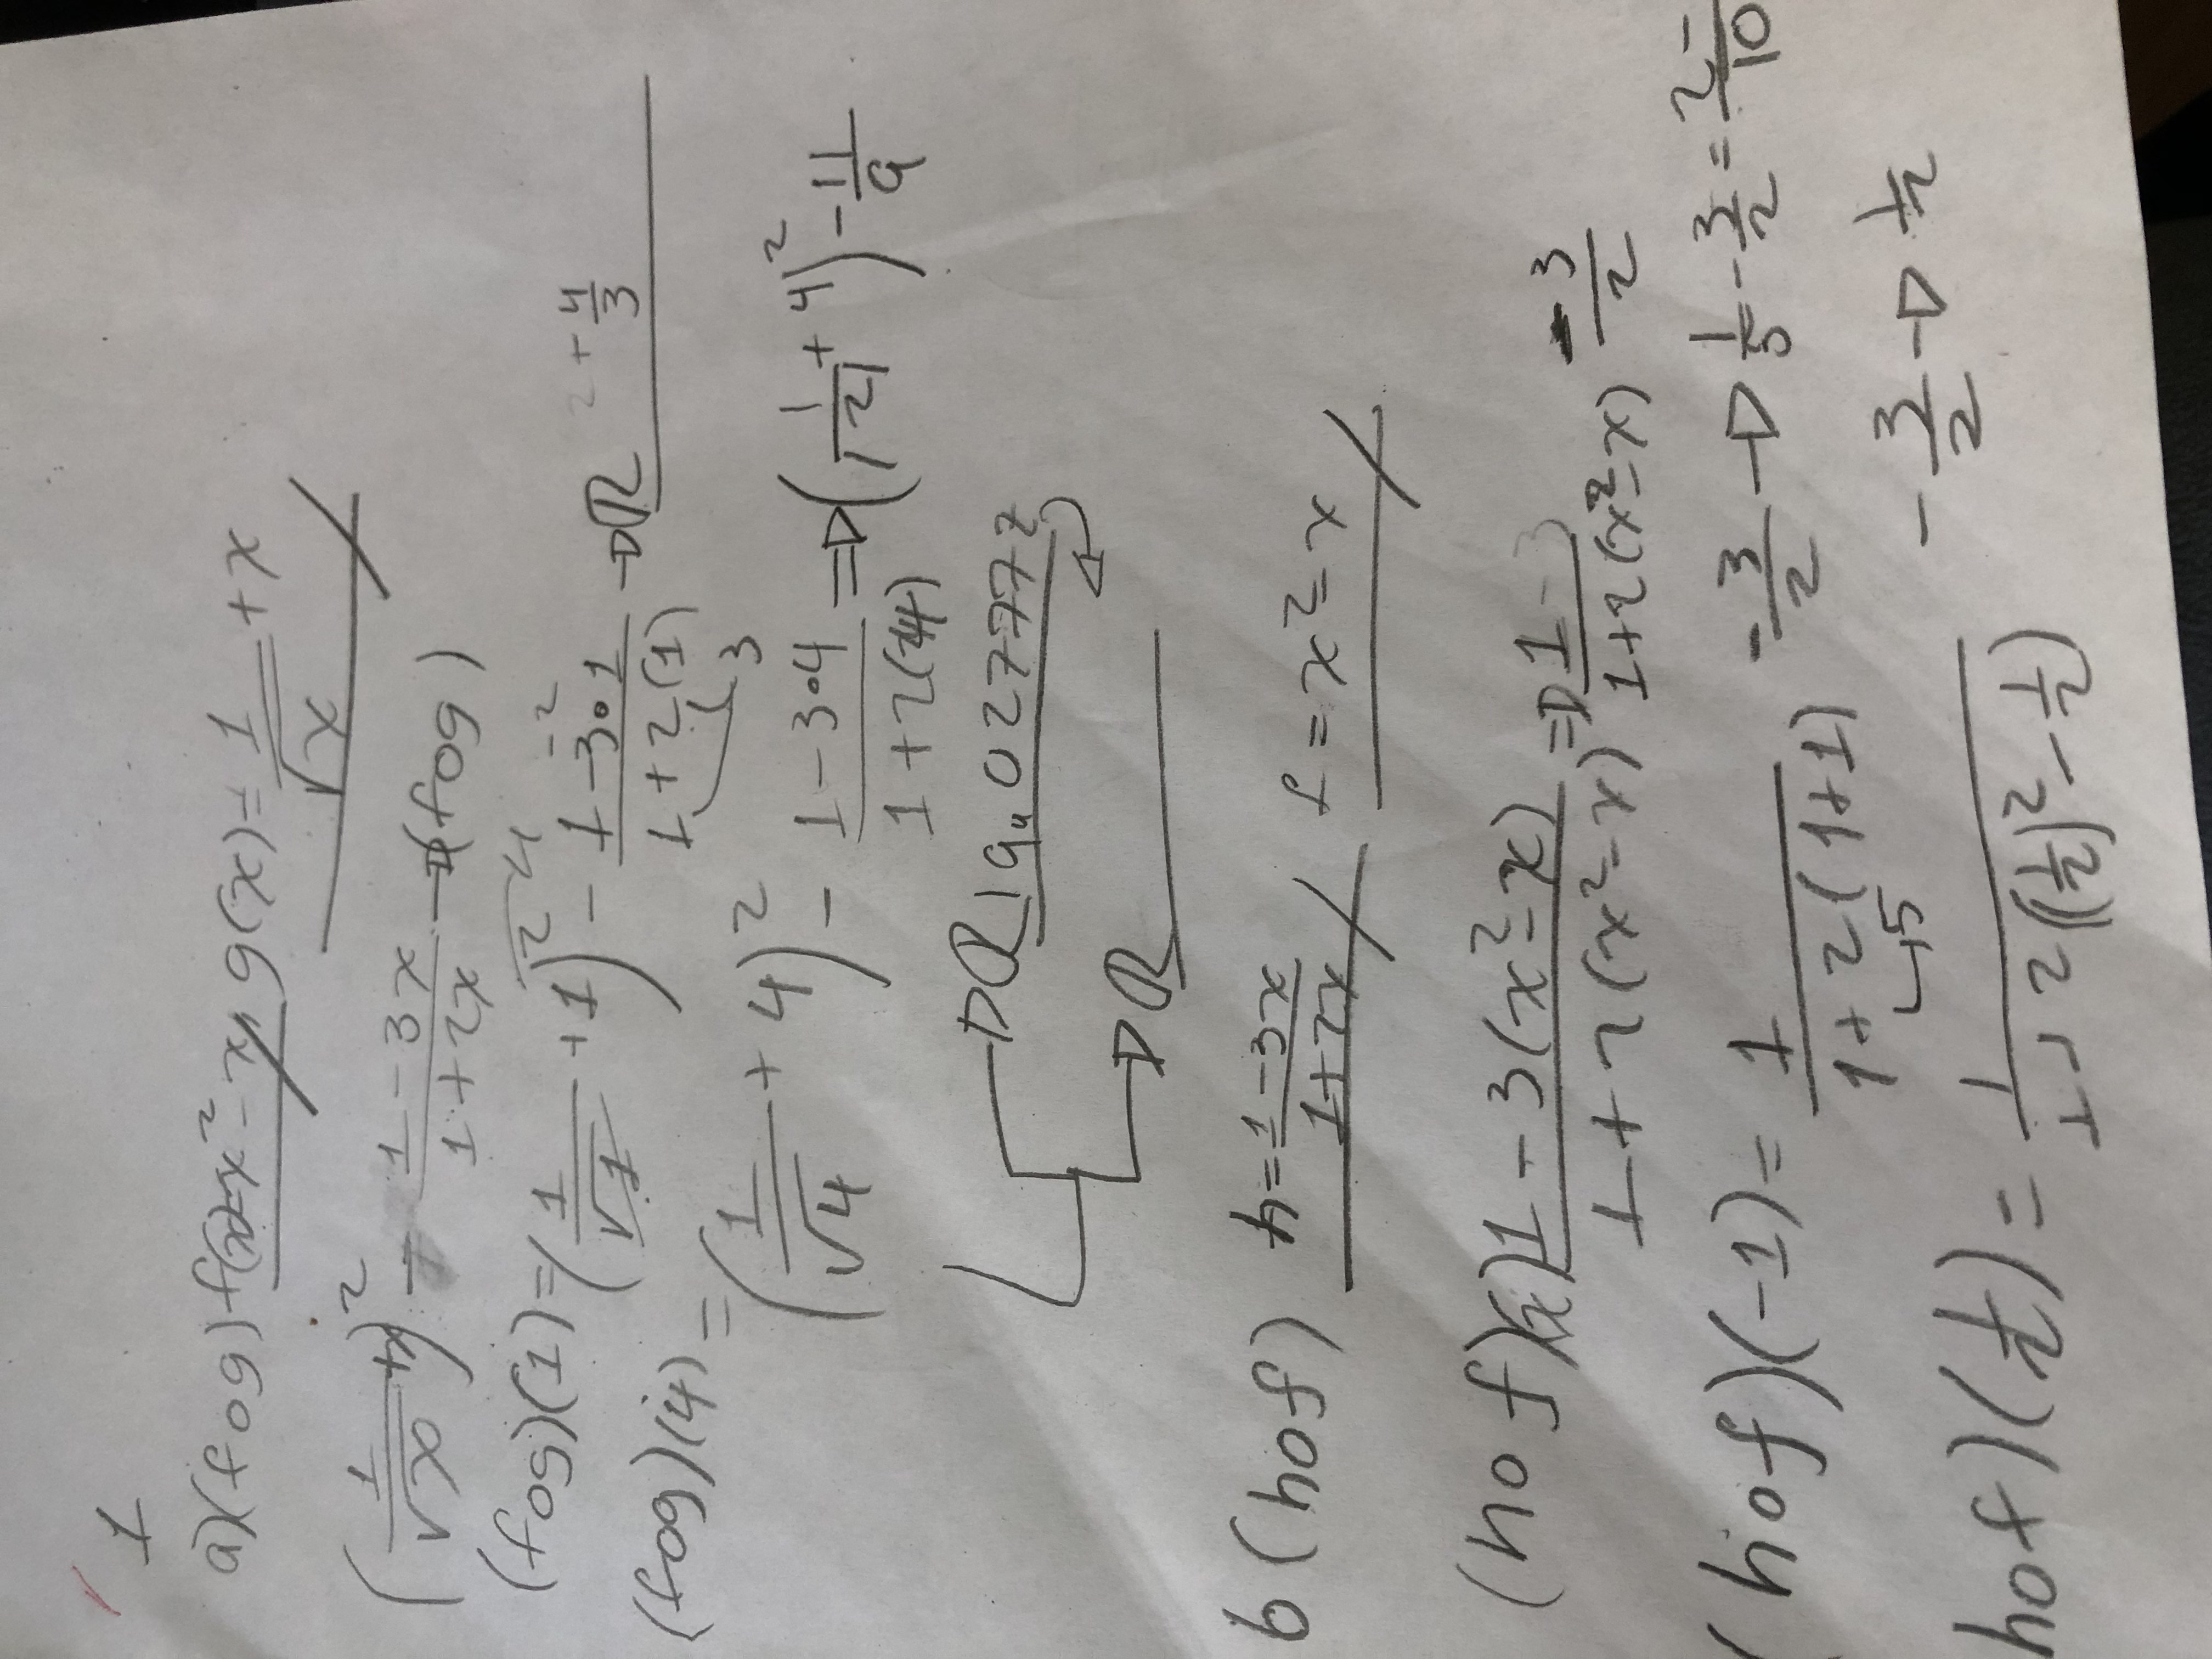 1
a)(fog) f(x)=x²-x, g(x)=1/√x +x
(1/√x +x)² - (1-3x)/(1+2x) → (fog)
(fog)(1)=(1/√1 +1)² 4 - (1-3•1)/(1+2(1)) -2 3 → R + 4/3
(fog)(4) = (1/√4 + 4)² - (1-3•4)/(1+2(4)) ⇒ (1/|2| + 4)² - 11/9
→ R 19.027777
→ R
b (hof) h=(1-3x)/(1+2x) f=x²-x
(hof)(x) (1-3(x²-x))/(1+2(x²-x)) ⇒ (1-3)/(1+2(x²-x)) -3/2
(hof)(-1)= 1/(1+2(1+1)) -3/2 → 1/5 - 3/2 = 2-/10
↳5
hof)(1/2)= 1/(1+2((1/2)²-1/2)) -3/2 → 1/2